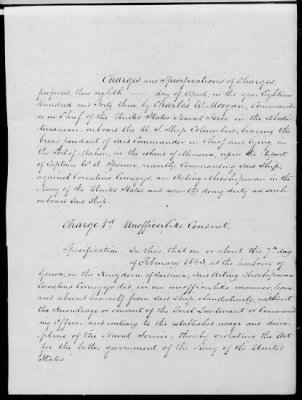 Charges and Specifications of Charges,
preferred, this eighth — day of April, in the year Eighteen
hundred and Forty three, by Charles W. Morgan, Command-
er in Chief of the United States Naval Force in the Medi-
terranean, onboard the U. S. Ship Columbus, bearing the
broad pendant of said Commander in Chief and lying in
the Port of Mahon, in the island of Minorca, upon the Report
of Captain W. A. Spencer, recently Commanding said Ship,
against Cornelius Comegys, an Acting Midshipman in the
Navy of the United States and now there doing duty as such
onboard said Ship.
Charge 1st Unofficerlike Conduct.
Specification. In this, that on or about the 7th day
of February 1843, at the harbour of
Genoa, in the Kingdom of Sardinia, said Acting Midshipman
Cornelius Comegys did, in an unofficerlike manner, leave
and absent himself from said Ship clandestinely, without
the knowledge or consent of the First Lieutenant or Command-
ing Officer, and contrary to the established usage and disci-
pline of the Naval Service; thereby violating the Act
for the better government of the Navy of the United
States.